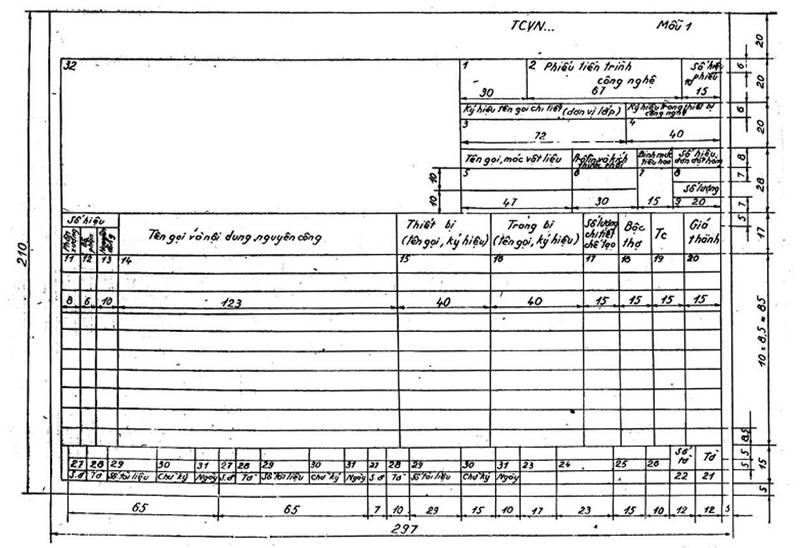 TCVN... Mẫu 1
32
1 2 Phiếu tiến trình công nghệ
Số hiệu phiếu
30 67 15
Ký hiệu tên gọi chi tiết (đơn vị lắp)
3 4
72 40
Tên gọi, mác vật liệu
Định mức tiêu hao
5 6 7 8
Số lượng
47 30 15 9 20
Số hiệu
Tên gọi và nội dung, nguyên công
Thiết bị (tên gọi, ký hiệu)
Trang bị (tên gọi, ký hiệu)
Số lượng chi tiết chế tạo
Bậc thợ
Tc
Giá thành
11 12 13 14 15 16 17 18 19 20
8 6 10 123 40 40 15 15 15 15
27 28 29 30 31 27 28 29 30 31 27 28 29 30 31 23 24 25 26 Số tờ Tờ
S.đ Tờ Số tài liệu Chữ ký Ngày S.đ Tờ Số tài liệu Chữ ký Ngày S.đ Tờ Số tài liệu Chữ ký Ngày 22 21
65 65 7 10 29 15 10 17 23 15 10 12 12 5
297
210
10 10
20
6 20
6 20
8 7 28
5 7
17
10 x 8,5 = 85
5 5 8,5 15
5